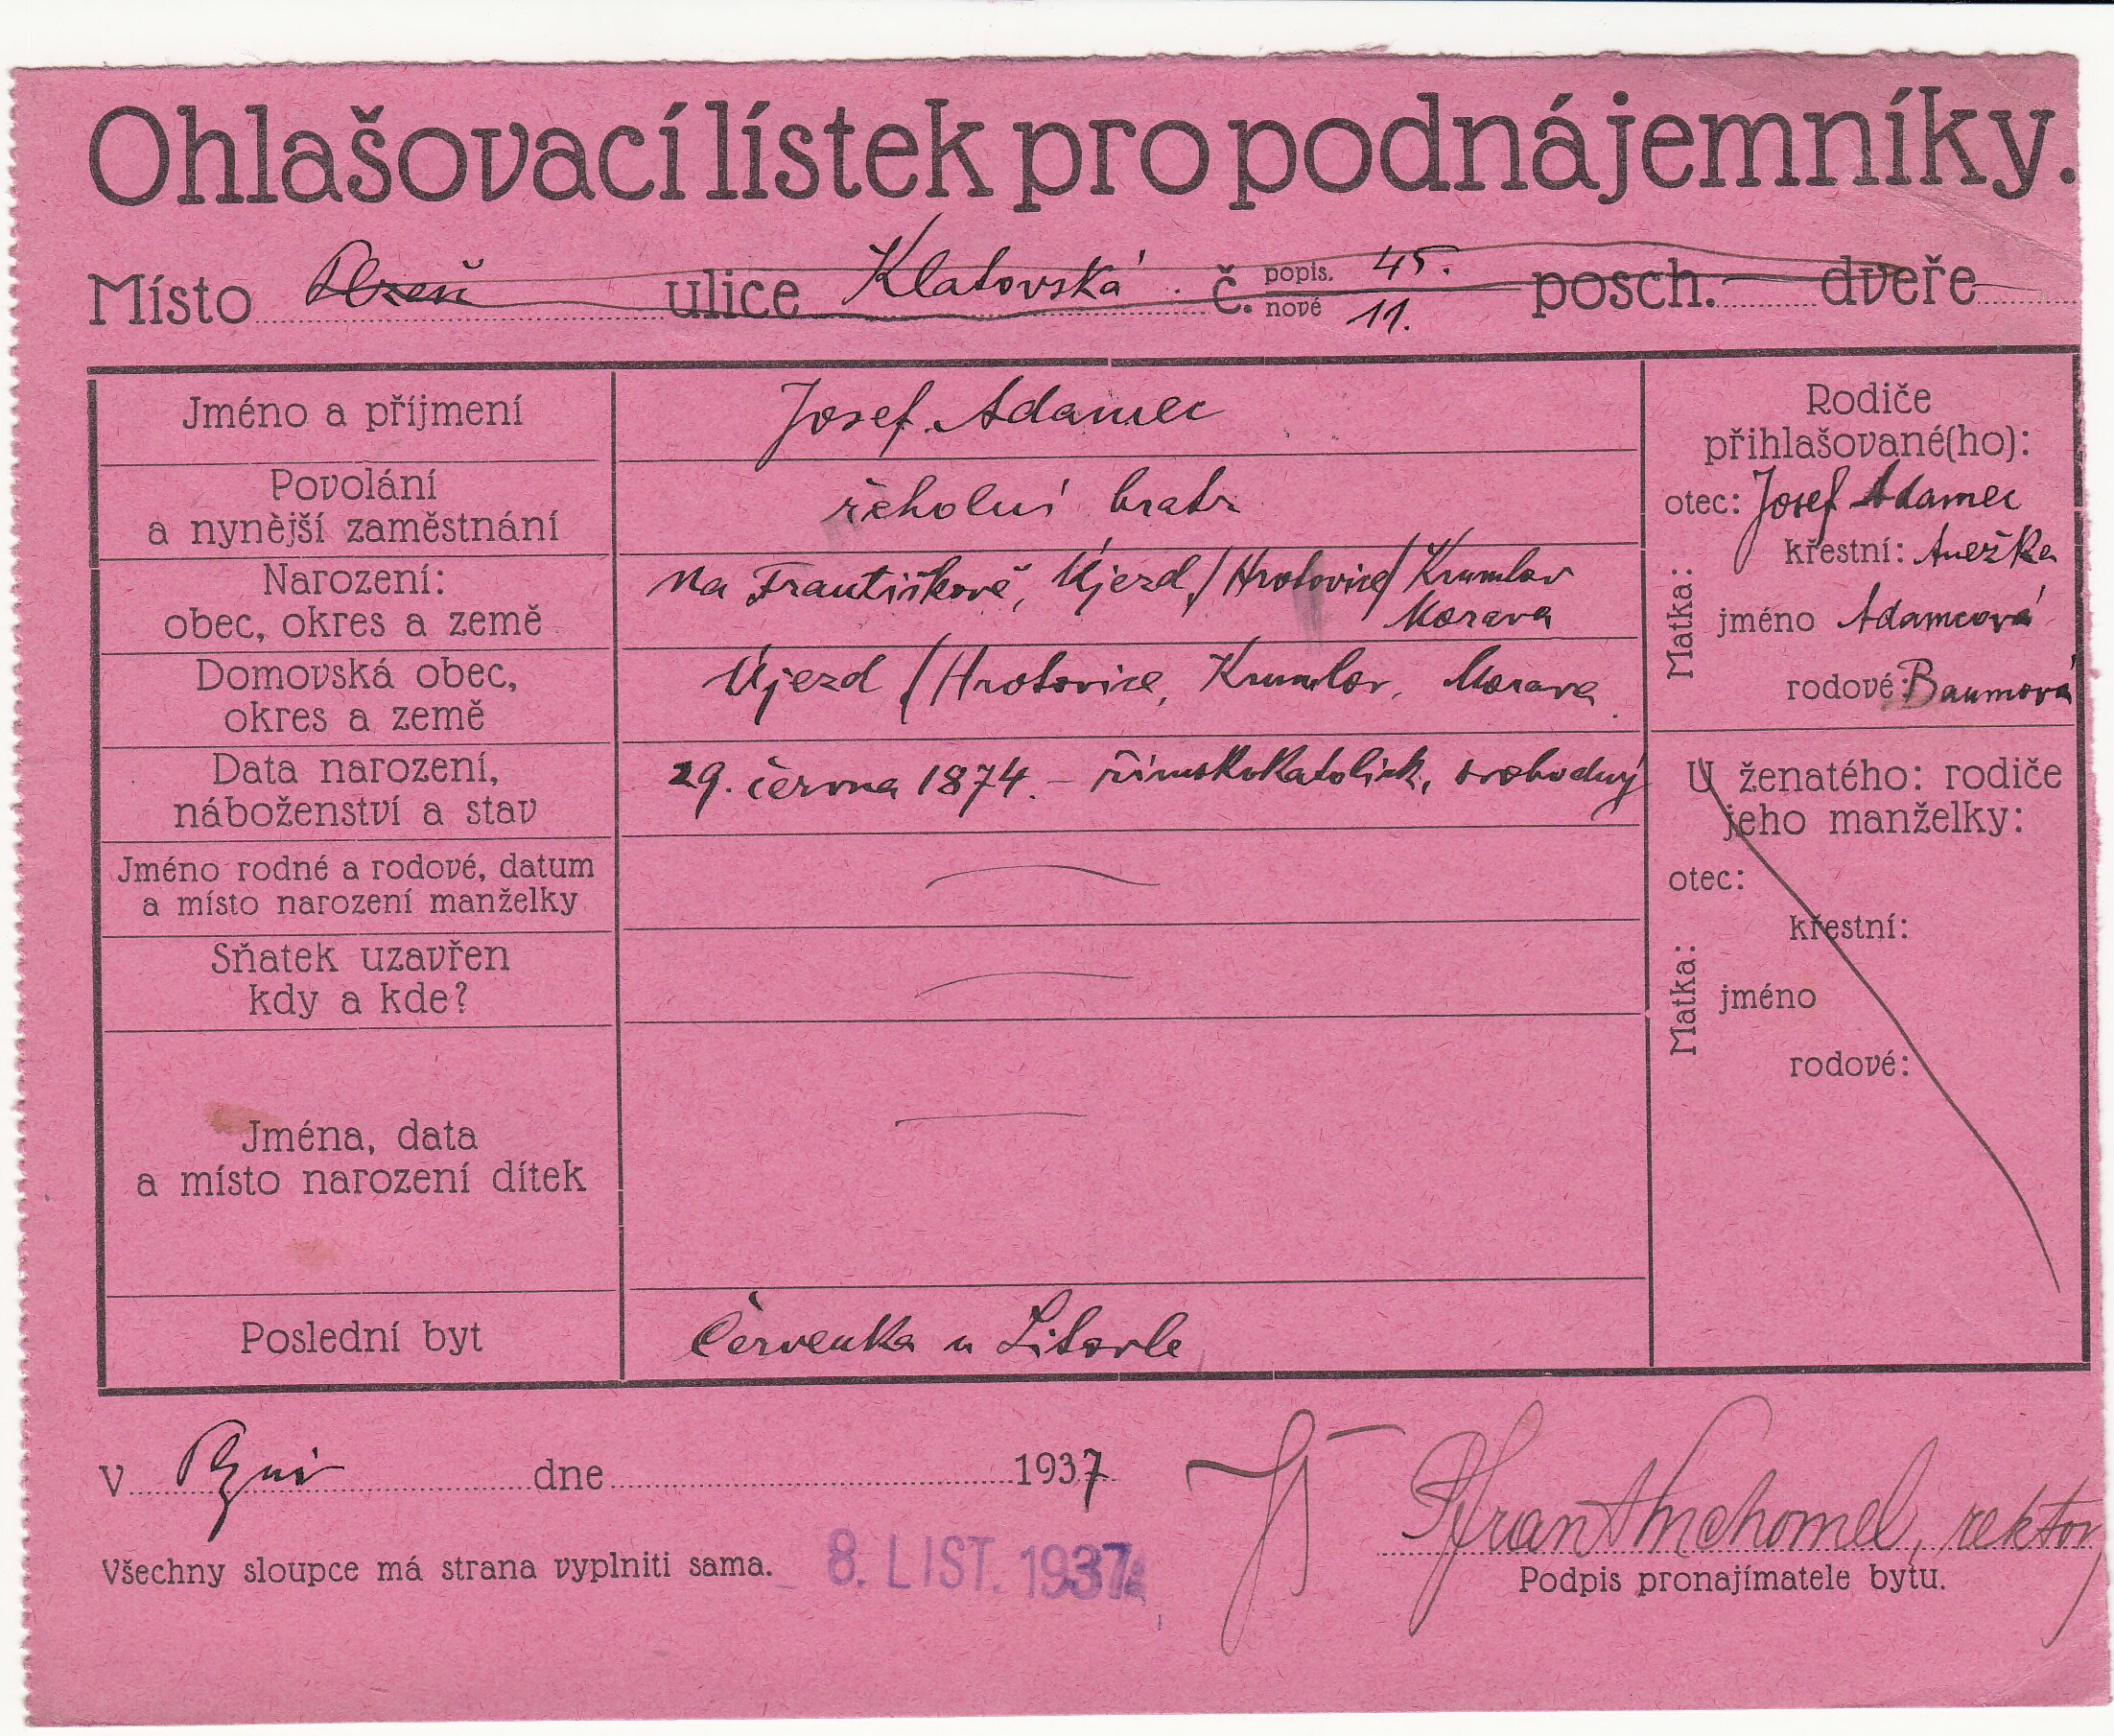 Ohlašovací lístek pro podnájemníky.
Místo Plzeň ulice Klatovská č. popis. 45. posch. dveře
nové 11.
Jméno a příjmení Josef Adamec
Povolání
a nynější zaměstnání řeholní bratr
Narození:
obec, okres a země Na Františkově, Újezd / Hrotovice / Krumlov
Morava
Domovská obec,
okres a země Újezd / Hrotovice, Krumlov, Morava
Data narození,
náboženství a stav 29. června 1874. – římskokatolick, svobodný
Jméno rodné a rodové, datum
a místo narození manželky
Sňatek uzavřen
kdy a kde?
Jména, data
a místo narození dítek
Poslední byt Červenka u Litovle
Rodiče
přihlašované(ho):
otec: Josef Adamec
Matka:
křestní: Anežka
jméno Adamcová
rodové: Baumová
U ženatého: rodiče
jeho manželky:
otec:
Matka:
křestní:
jméno
rodové:
V Plzni dne 1937
rektor
Všechny sloupce má strana vyplniti sama. 8. LIST. 1937
Podpis pronajímatele bytu.